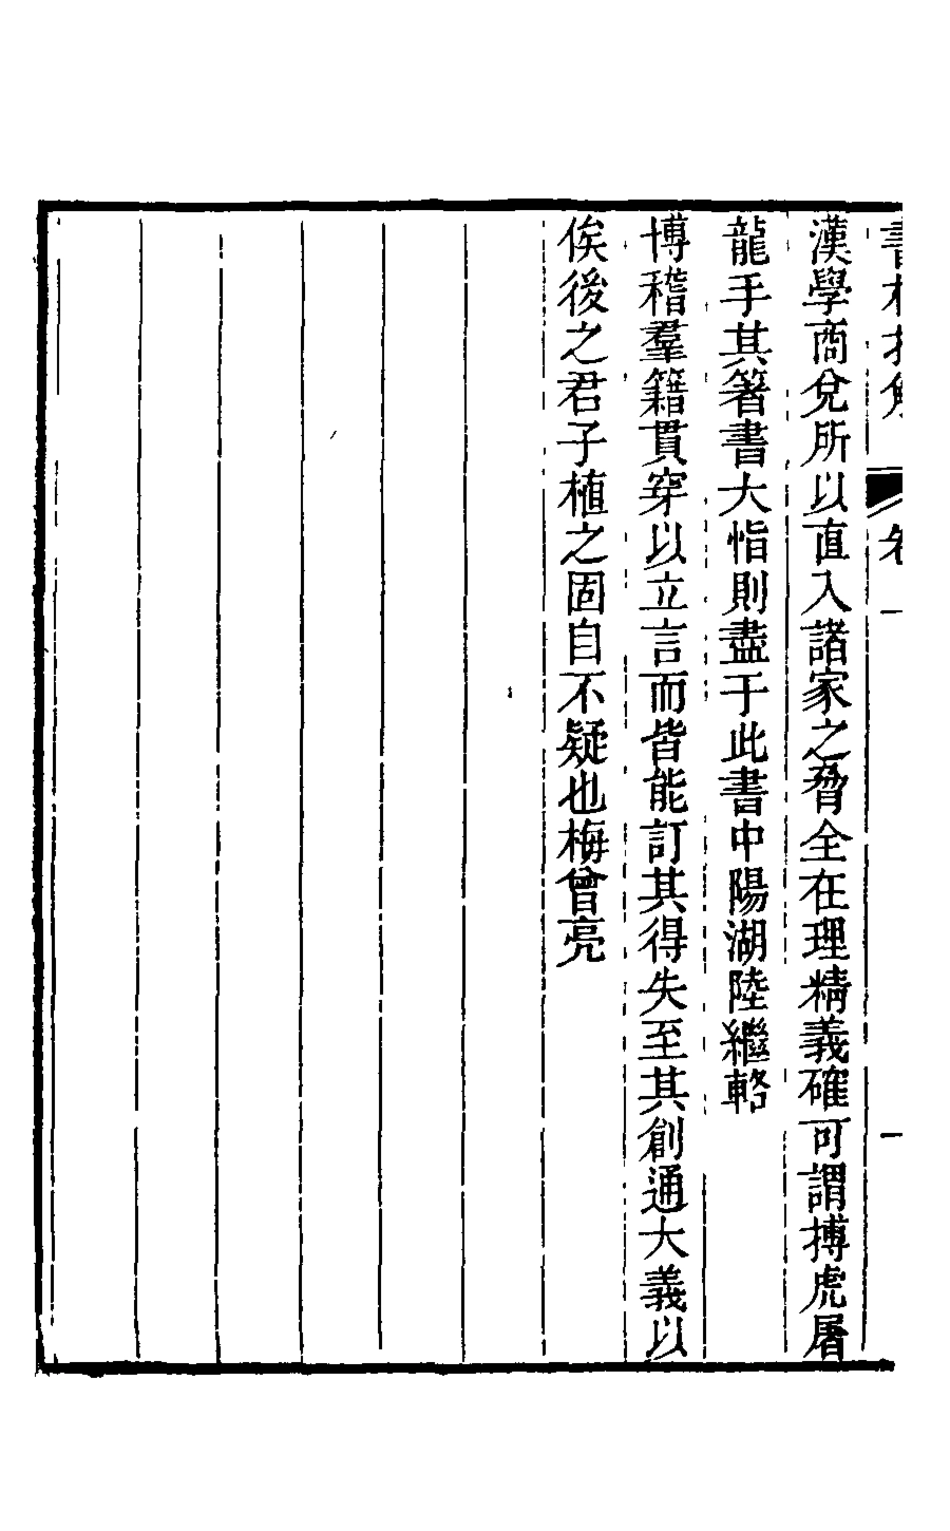 漢學商兌所以直入諸家之脅全在理精義確可謂搏虎屠
龍手其箸書大恉則盡于此書中陽湖陸繼輅
博稽羣籍貫穿以立言而皆能訂其得失至其創通大義以
俟後之君子植之固自不疑也梅曾亮